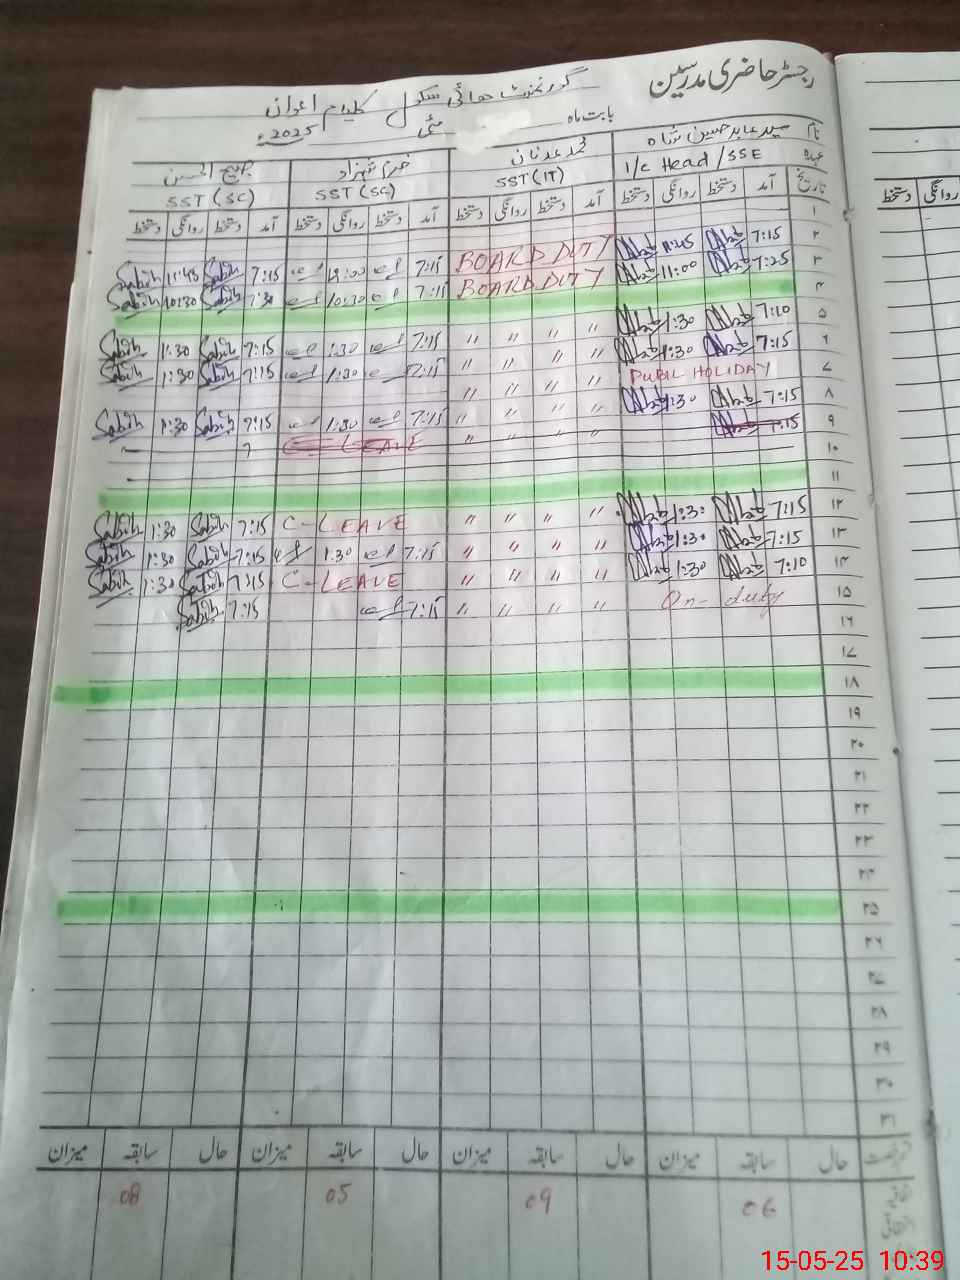 رجسٹر حاضری مدرسین
گورنمنٹ ہائی سکول کلیام اعوان
بابت ماہ مئی 2025ء
نام سید عابد حسین شاہ محمد عدنان خرم شہزاد الحسن
عہدہ I/c Head/SSE SST(IT) SST(SC) SST(SC)
تاریخ آمد دستخط روانگی دستخط آمد دستخط روانگی دستخط آمد دستخط روانگی دستخط آمد دستخط روانگی دستخط
۱
۲ 7:15 11:45 BOARD DUTY 7:15 7:15 Sabih 11:45 Sabih
۳ 7:25 11:00 BOARD DUTY 7:15 10:30 7:30 Sabih 10:30 Sabih
۴
۵ 7:10 1:30 〃 〃 〃 〃 7:15 1:30 7:15 Sabih 1:30 Sabih
۶ 7:15 1:30 〃 〃 〃 〃 7:15 1:30 7:15 Sabih 1:30 Sabih
۷ PUBIL HOLIDAY 〃 〃 〃 〃
۸ 7:15 1:30 〃 〃 〃 〃 7:15 1:30 7:15 Sabih 1:30 Sabih
۹ 7:15 〃 〃 〃 〃 C-LEAVE 7
۱۰
۱۱
۱۲ 7:15 1:30 〃 〃 〃 〃 C-LEAVE 7:15 Sabih 1:30 Sabih
۱۳ 7:15 1:30 〃 〃 〃 〃 7:15 1:30 7:15 Sabih 1:30 Sabih
۱۴ 7:10 1:30 〃 〃 〃 〃 C-LEAVE 7:15 Sabih 1:30 Sabih
۱۵ On-duty 〃 〃 〃 〃 7:15 7:15 Sabih
۱۶
۱۷
۱۸
۱۹
۲۰
۲۱
۲۲
۲۳
۲۴
۲۵
۲۶
۲۷
۲۸
۲۹
۳۰
۳۱
حال سابقہ میزان حال سابقہ میزان حال سابقہ میزان حال سابقہ میزان
06 09 05 08
15-05-25 10:39